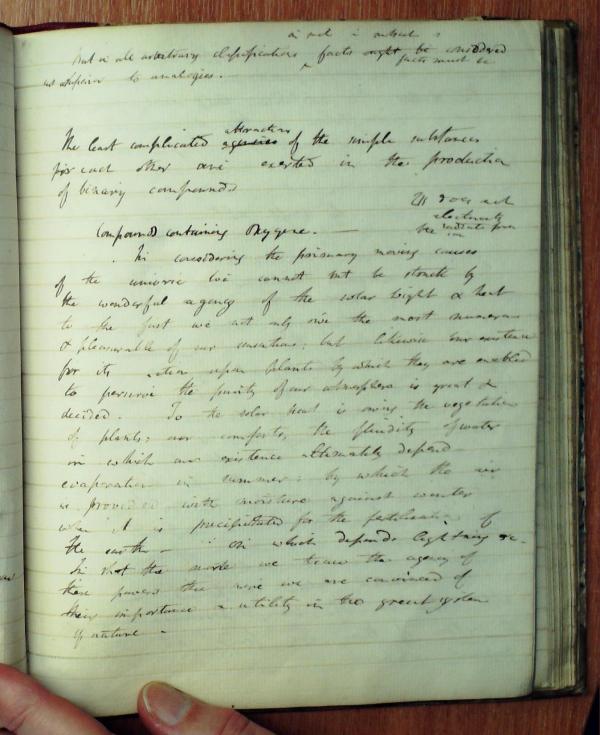 But in all arbitrary classifications facts ought be considered
facts must be
to analogies.
The least complicated agencies of the simple substances
attractions
for each other are exerted in the production
of binary compounds
Compounds containing Oxygene. —
does not
electricity
In considering the primary moving causes
of the universe we cannot but be struck by
the wonderful agency of the solar light & heat
to the first we not only owe the most numerous
& pleasurable of our sensations; but likewise our existence
for its action upon plants by which they are enabled
to perserve the purity of our atmosphere is great &
decided. To the solar heat is owing the vegetation
of plants; our comforts, the fluidity of water
on which our existence ultimately depend
evaporation in summer: by which the air
is provided with moisture against winter
when it is precipitated for the fertilization of
the earth — on which depends lightning &c.
In short the more we trace the agency of
these powers the more we are convinced of
their importance & utility in the great system
of nature —